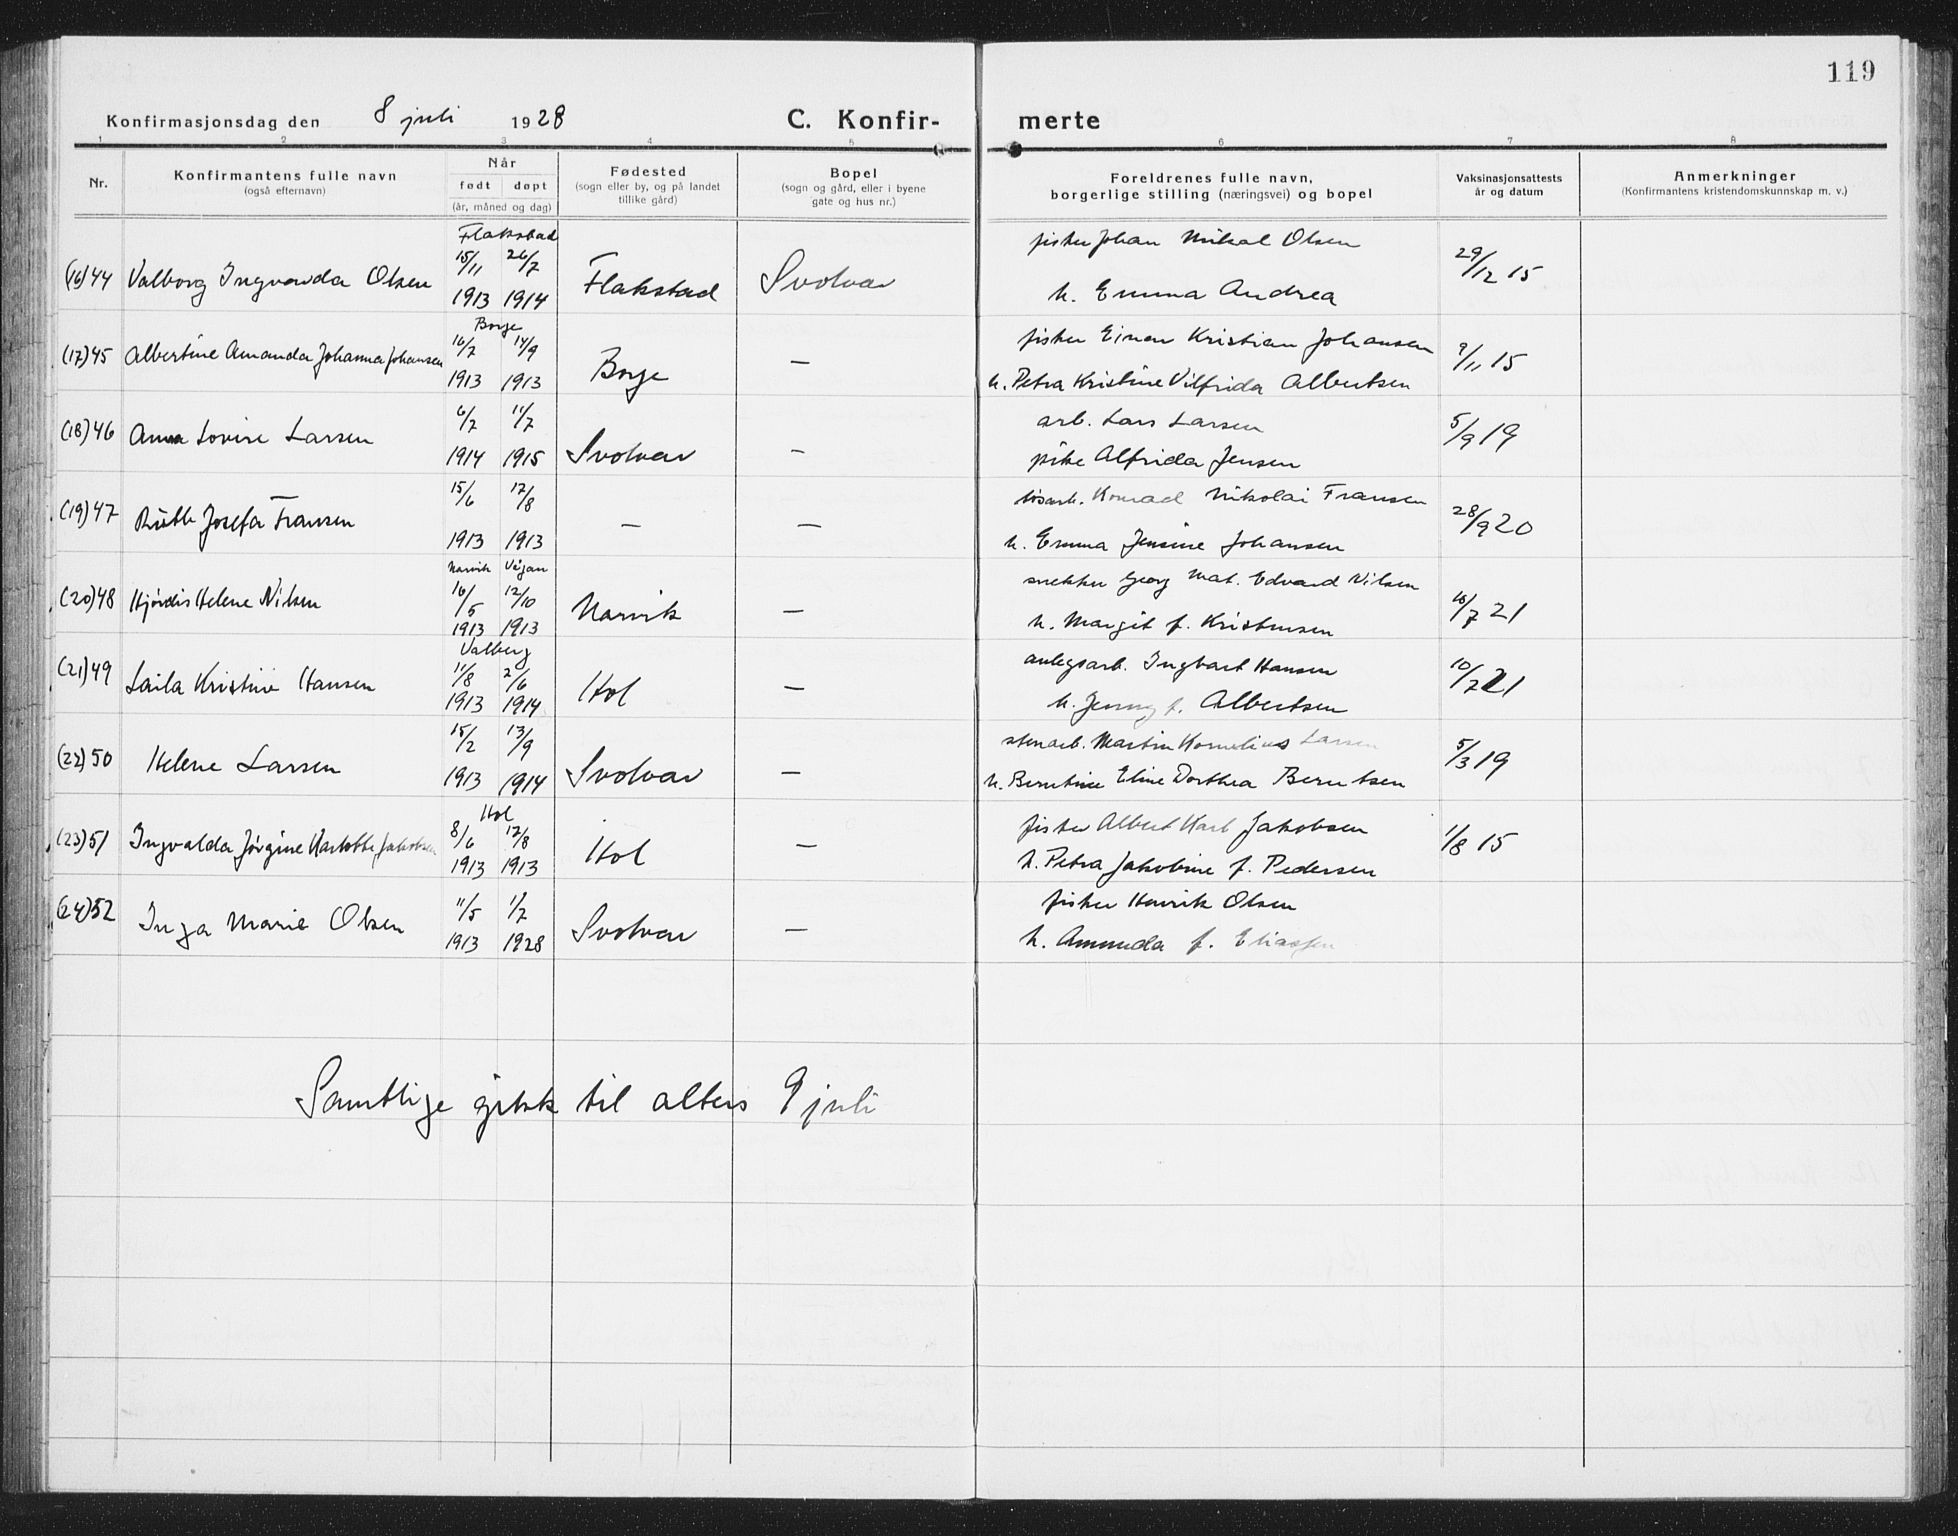 119
Konfirmasjonsdag den 8 juli 1928 C. Konfir- merte
1 2 3 4 5 6 7 8
Nr. Konfirmantens fulle navn (også efternavn) Når født døpt (år, måned og dag) Fødested (sogn eller by, og på landet tillike gård) Bopel (sogn og gård, eller i byene gate og hus nr.) Foreldrenes fulle navn, borgerlige stilling (næringsvei) og bopel Vaksinasjonsattests år og datum Anmerkninger (Konfirmantens kristendomskunnskap m. v.)
Flakstad
(16) 44 Valborg Ingvarda Olsen 15/11 1913 26/7 1914 Flakstad Svolvær fisker Johan Mikal Olsen 29/12 15
h. Emma Andrea
Borge
(17) 45 Albertine Amanda Johanna Johansen 16/7 1913 14/9 1913 Borge — fisker Einar Kristian Johansen 9/11 15
h. Petra Kristine Vilfrida Albertsen
(18) 46 Anna Lovise Larsen 6/7 1914 11/7 1915 Svolvær — arb. Lars Larsen 5/9 19
pike Alfrida Jensen
(19) 47 Ruth Josefa Fransen 15/6 1913 17/8 1913 — — løsarb. Konrad Nikolai Fransen 28/9 20
h. Emma Jensine Johansen
Narvik Vågan
(20) 48 Hjørdis Helene Nilsen 16/5 1913 12/10 1913 Narvik — snekker Georg Mat. Edvard Nilsen 16/7 21
h. Margit f. Kristensen
Valberg
(21) 49 Laila Kristine Hansen 11/8 1913 2/6 1914 Hol — anlegsarb. Ingvart Hansen 10/7 21
h. Jenny f. Albertsen
(22) 50 Helene Larsen 15/2 1913 13/9 1914 Svolvær — stenarb. Martin Kornelius Larsen 5/3 19
h. Berntine Eline Dorthea Berntsen
Hol
(23) 51 Ingvalda Jørgine Karlotte Jakobsen 8/6 1913 17/8 1913 Hol — fisker Albert Karl Jakobsen 1/8 15
h. Petra Jakobine f. Pedersen
(24) 52 Inga Marie Olsen 11/5 1913 1/7 1928 Svolvær — fisker Henrik Olsen
h. Amunda f. Eliassen
Samtlige gikk til alters 9 juli